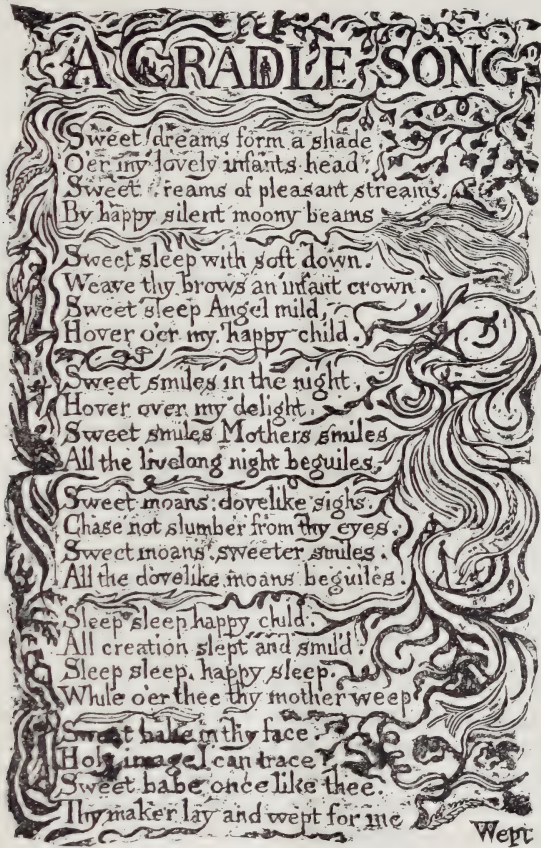 A CRADLE SONG
Sweet dreams form a shade
Oer my lovely infants head
Sweet reams of pleasant streams
By happy silent moony beams
Sweet sleep with soft down.
Weave thy brows an infant crown.
Sweet sleep Angel mild,
Hover o'er my happy child.
Sweet smiles in the night,
Hover over my delight.
Sweet smiles Mothers smiles
All the livelong night beguiles.
Sweet moans, dovelike sighs,
Chase not slumber from thy eyes
Sweet moans, sweeter smiles.
All the dovelike moans beguiles.
Sleep sleep happy child.
All creation slept and smil'd.
Sleep sleep, happy sleep.
While o'er thee thy mother weep
Sweet babe in thy face
Holy image I can trace
Sweet babe once like thee.
Thy maker lay and wept for me
Wept